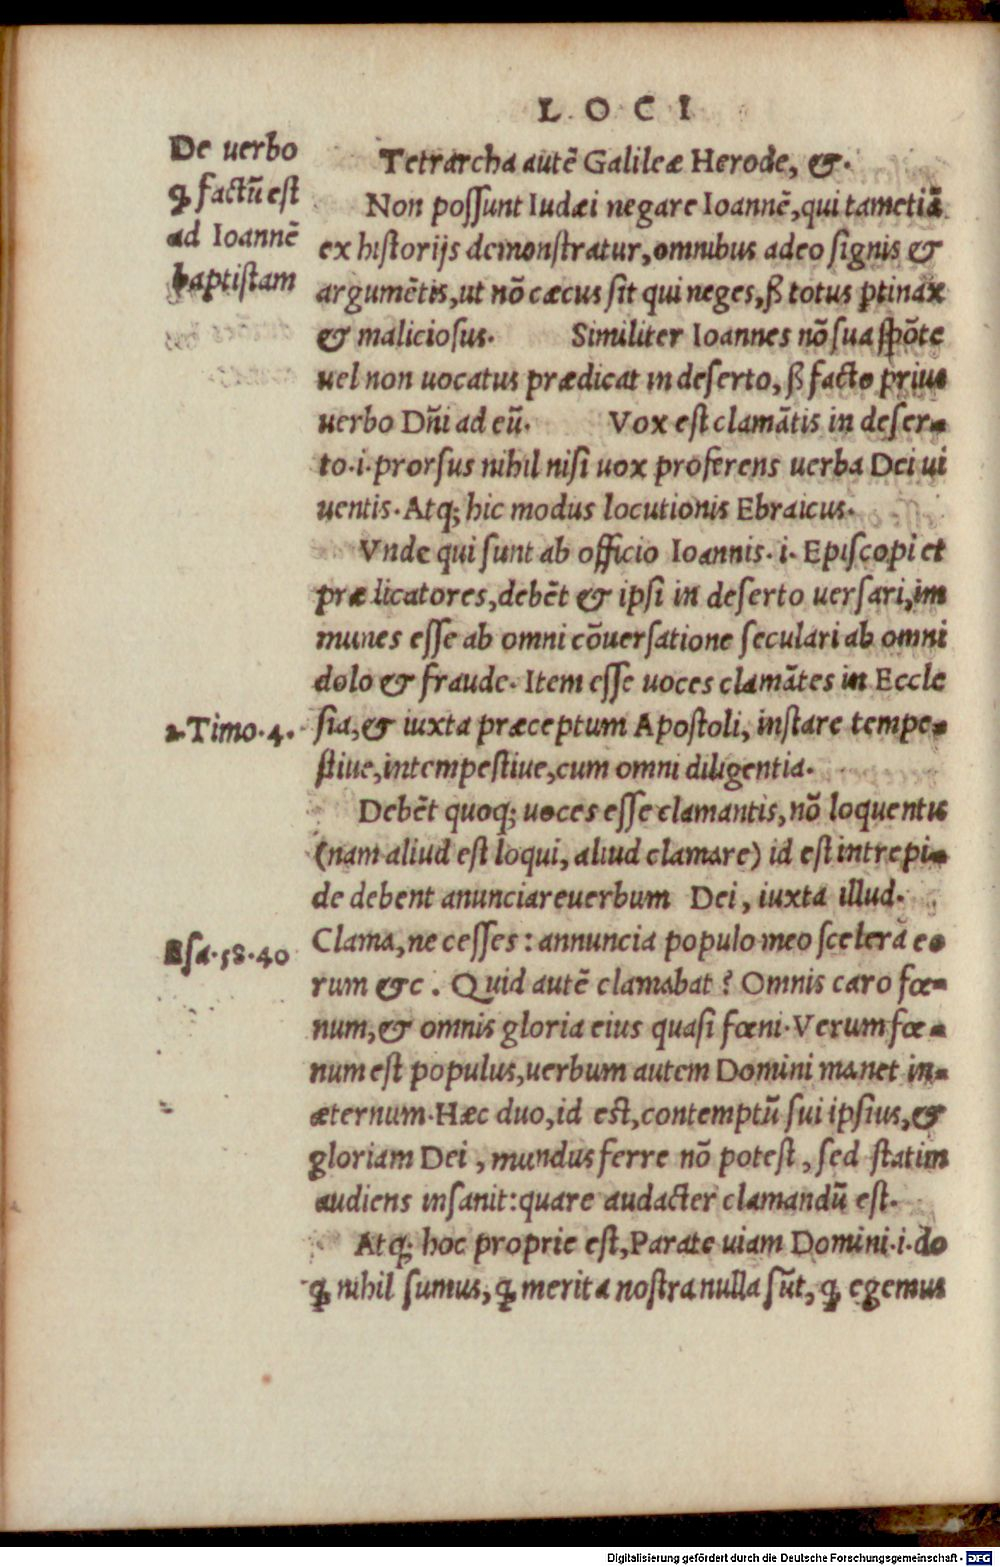 LOCI
De uerbo
ꝙ factũ est
ad Ioannẽ
baptistam
Tetrarcha autẽ Galileæ Herode, &.
Non possunt Iudæi negare Ioannẽ, qui tam etiã
ex historijs demonstratur, omnibus adeo signis &
argumẽtis, ut nõ cæcus sit qui neges, ß totus ptinax
& maliciosus. Similiter Ioannes nõ sua spõte
uel non uocatus prædicat in deserto, ß facto prius
uerbo Dñi ad eũ. Vox est clamãtis in deser-
to.i.prorsus nihil nisi uox proferens uerba Dei ui
uentis. Atq; hic modus locutionis Ebraicus.
Vnde qui sunt ab officio Ioannis.i. Episcopi et
prædicatores, debẽt & ipsi in deserto uersari, im
munes esse ab omni cõuersatione seculari ab omni
dolo & fraude. Item esse uoces clamãtes in Eccle
2.Timo.4.
sia, & iuxta præceptum Apostoli, instare tempe-
stiue, intempestiue, cum omni diligentia.
Debẽt quoq; uoces esse clamantis, nõ loquentis
(nam aliud est loqui, aliud clamare) id est intrepi-
de debent anunciare uerbum Dei, iuxta illud.
Esa.58.40
Clama, ne cesses: annuncia populo meo scelera eo
rum &c. Quid autẽ clamabat? Omnis caro fœ-
num, & omnis gloria eius quasi fœni. Verum fœ-
num est populus, uerbum autem Domini manet in-
æternum. Hæc duo, id est, contemptũ sui ipsius, &
gloriam Dei, mundus ferre nõ potest, sed statim
audiens insanit: quare audacter clamandũ est.
Atq; hoc proprie est, Parate uiam Domini.i.do
ꝙ nihil sumus, ꝙ merita nostra nulla sũt, ꝙ egemus
Digitalisierung gefördert durch die Deutsche Forschungsgemeinschaft - DFG